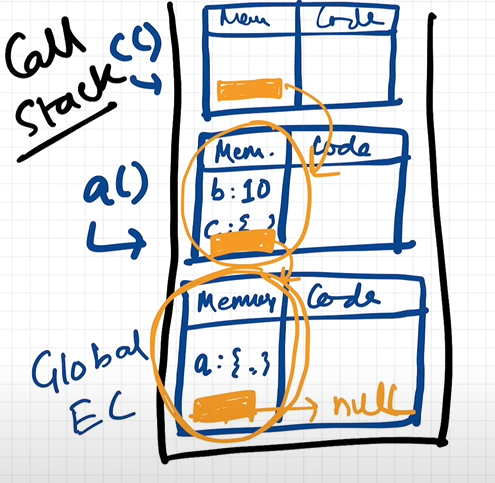 Call
Stack
c()
Mem
Code
a()
Mem.
Code
b:10
c:{ }
Global
EC
Memory
Code
a:{..}
null